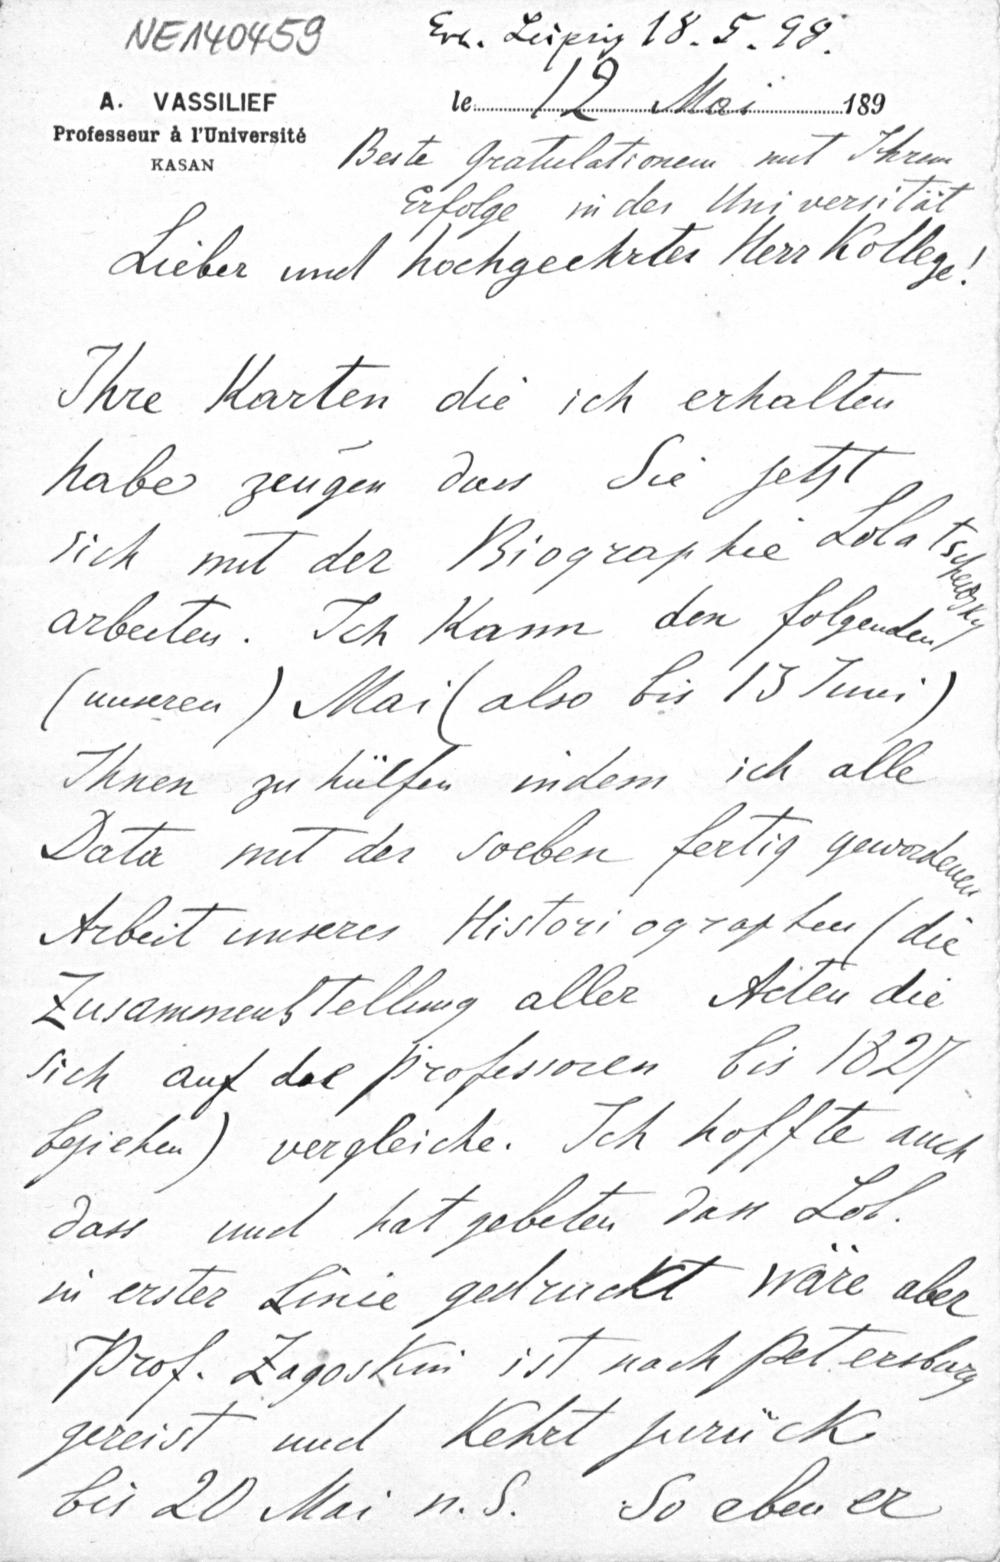 NE140459
Erh. Leipzig 18. 5. 98.
A. VASSILIEF
Professeur à l'Université
KASAN
le 12 Mai 189
Beste Gratulationem mit Ihrem
Erfolge in der Universität
Lieber und hochgeehrter Herr Kollege!
Ihre Karten die ich erhalten
habe zeugen dass Sie jetzt
sich mit der Biographie Lobatschewsky
arbeiten. Ich kann den folgenden
(unseren) Mai (also bis 13 Juni)
Ihnen zu hülfen indem ich alle
Data mit der soeben fertig gewordenen
Arbeit unseres Historiographen (die
Zusammenstellung aller Acten die
sich auf die Professoren bis 1827
beziehen) vergleiche. Ich hoffte auch
dass und hat gebeten dass Lob.
in erster Linie gedruckt wäre aber
Prof. Zagoskin ist nach Petersburg
gereist und kehrt zurück
bis 20 Mai n. S. So eben er